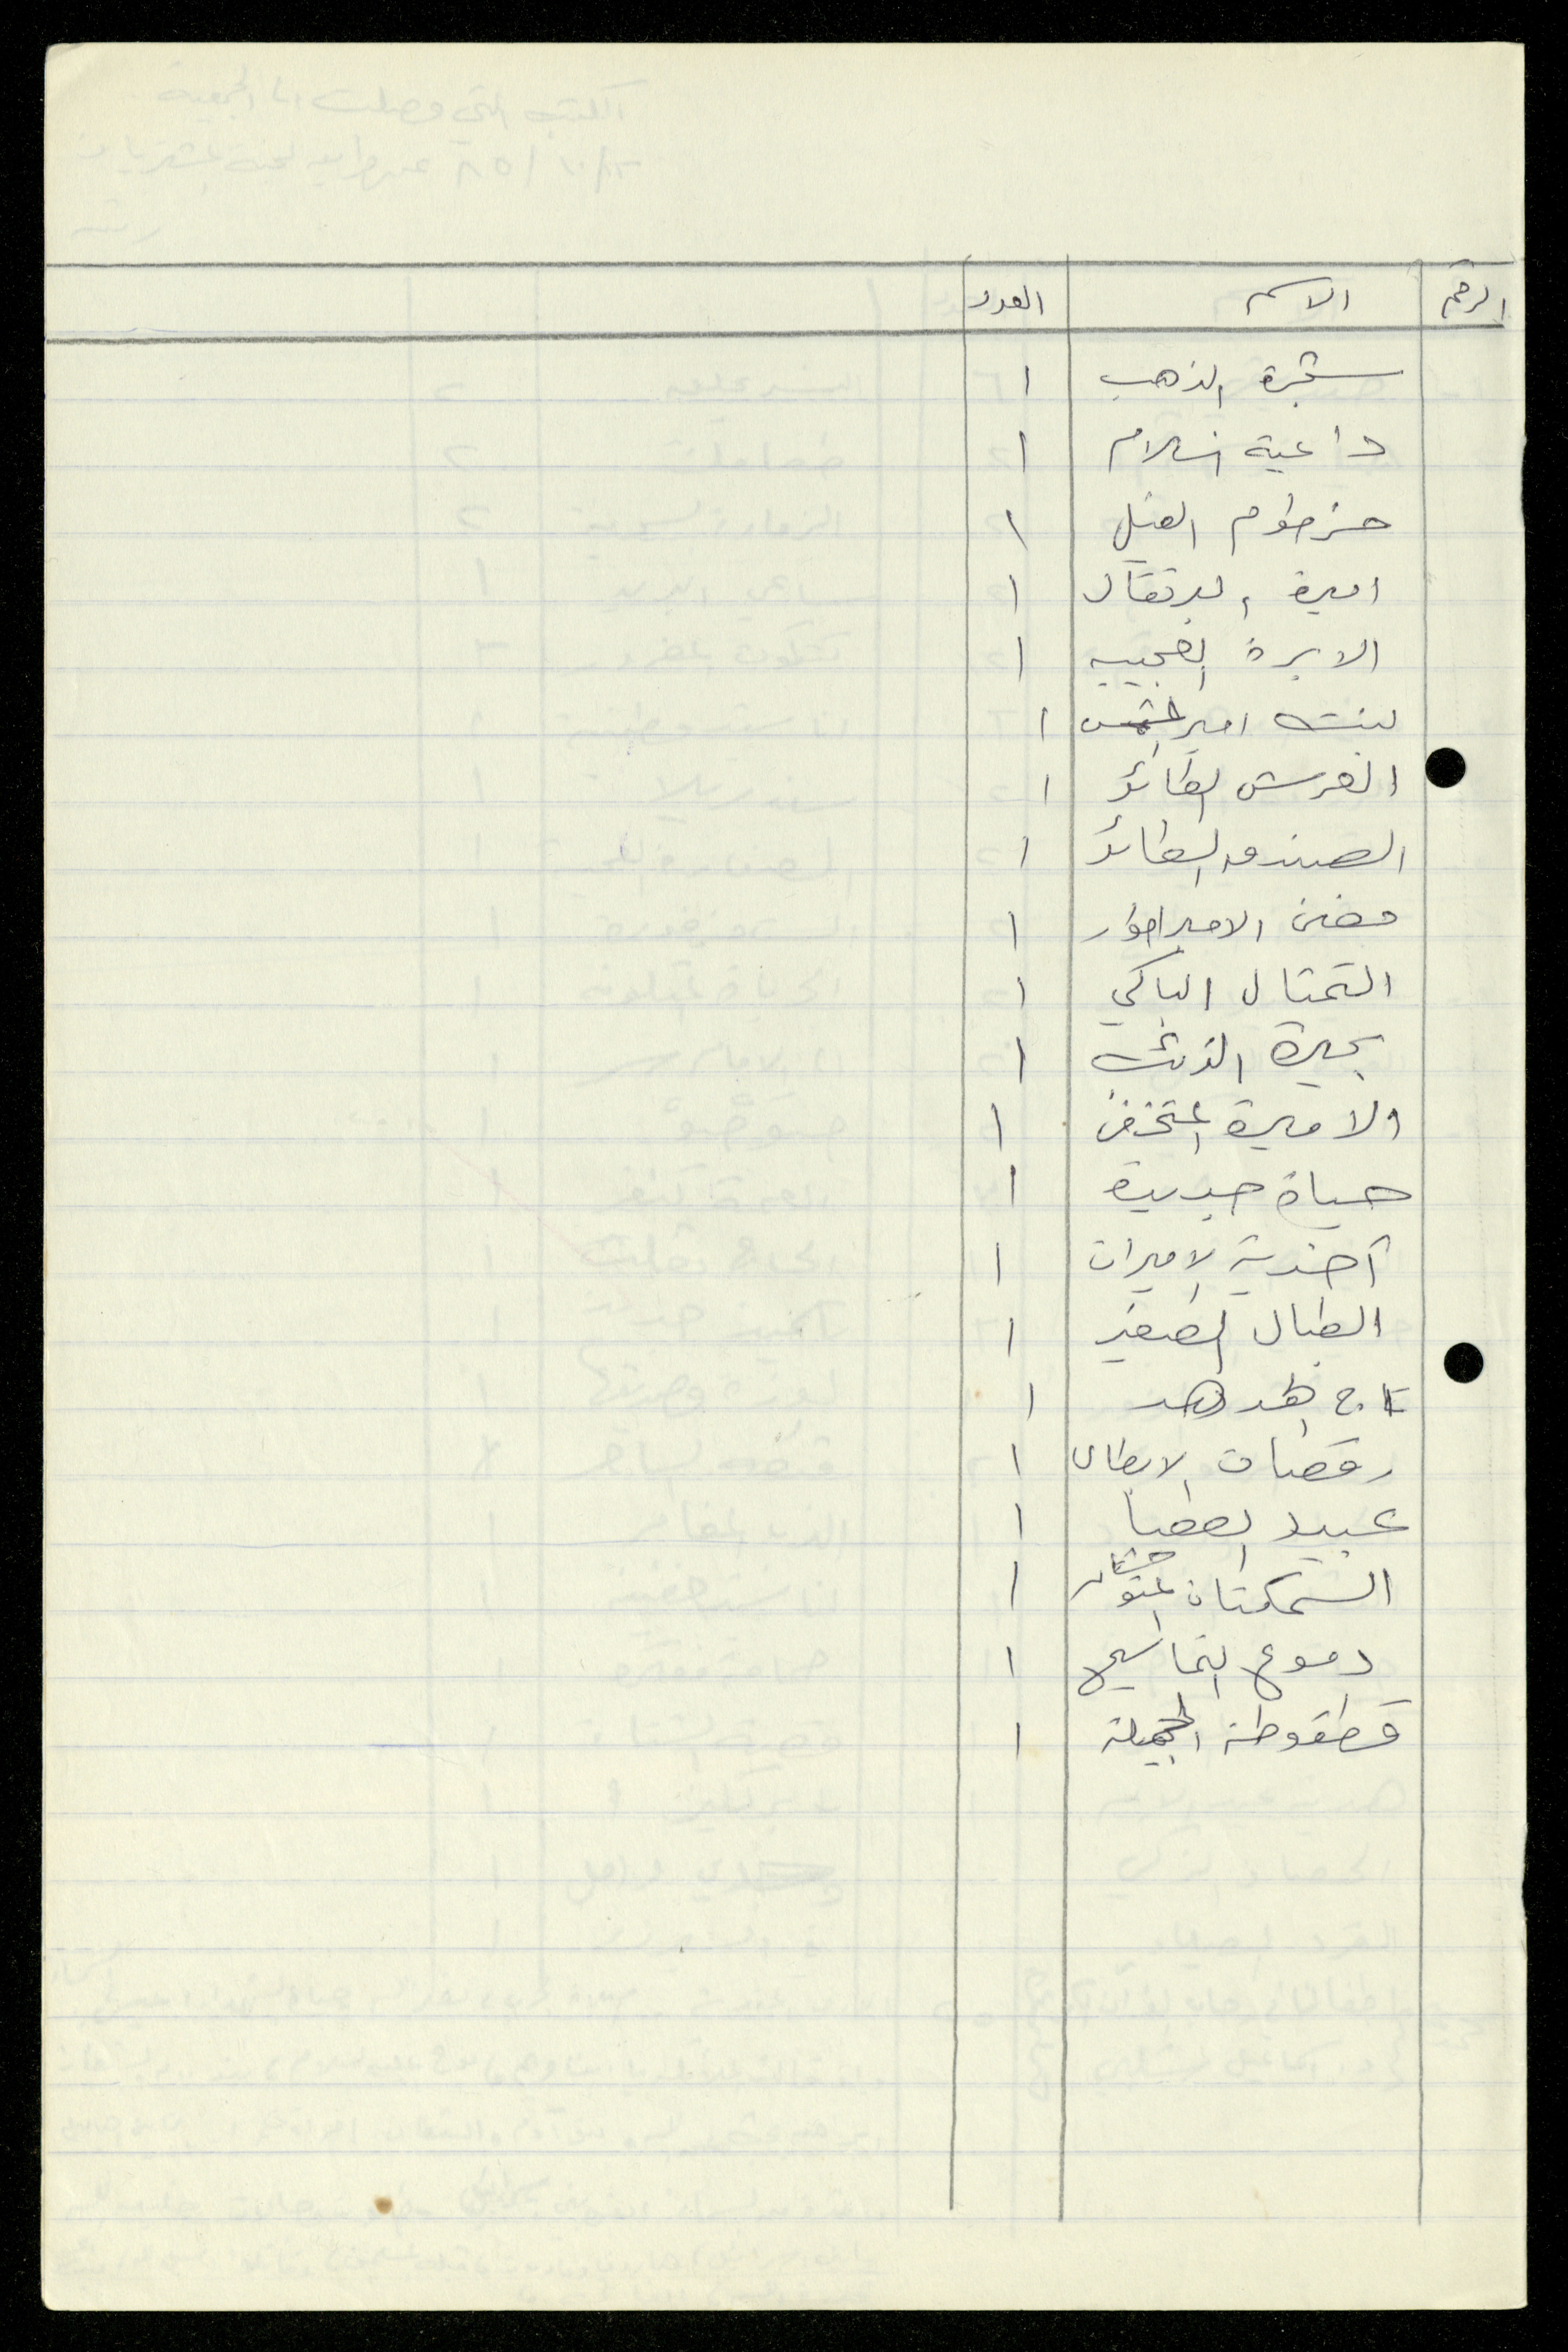 الرقم الاسم العدد
شجرة الذهب ١
داعية السلام ١
خرطوم الفيل ١
اميرة البرتقال ١
الابرة العجيبه ١
بنت امير الشمس ١
الفرس الطائر ١
الصندوق الطائر ١
مغني الامبراطور ١
التمثال الباكي ١
بحيرة الذئب ١
الاميرة المتخفي ١
حياة جديدة ١
أحذية الاميرات ١
الطبال الصغير ١
تاج الهدهد ١
رقصات الابطال ١
عبيد العصا ١
السمكتان المتوحشتان ١
دموع التماسيح ١
قطقوطة الجميلة ١